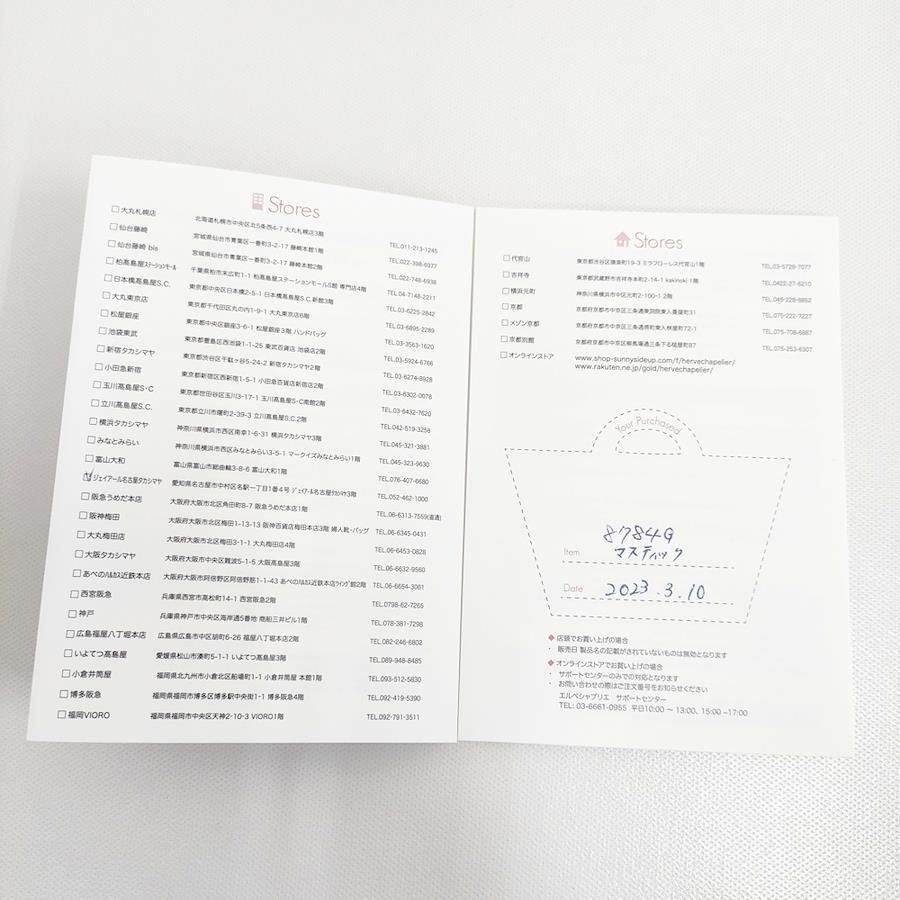 Stores
大丸札幌店 北海道札幌市中央区北5条西4-7 大丸札幌店3階 TEL.011-213-1245
仙台藤崎 宮城県仙台市青葉区一番町3-2-17 藤崎本館1階 TEL.022-398-6977
仙台藤崎 bis 宮城県仙台市青葉区一番町3-2-17 藤崎本館2階 TEL.022-748-6938
柏髙島屋ステーションモール 千葉県柏市末広町1-1 柏髙島屋ステーションモールS館 専門店4階 TEL.04-7148-2211
日本橋髙島屋S.C. 東京都中央区日本橋2-5-1 日本橋髙島屋S.C.新館3階 TEL.03-6225-2842
大丸東京店 東京都千代田区丸の内1-9-1 大丸東京店6階 TEL.03-6895-2289
松屋銀座 東京都中央区銀座3-6-1 松屋銀座3階 ハンドバッグ TEL.03-3563-1620
池袋東武 東京都豊島区西池袋1-1-25 東武百貨店 池袋店2階 TEL.03-5924-6766
新宿タカシマヤ 東京都渋谷区千駄ヶ谷5-24-2 新宿タカシマヤ2階 TEL.03-6274-8928
小田急新宿 東京都新宿区西新宿1-5-1 小田急百貨店新宿店2階 TEL.03-6302-0078
玉川髙島屋S・C 東京都世田谷区玉川3-17-1 玉川髙島屋S・C南館2階 TEL.03-6432-7620
立川髙島屋S.C. 東京都立川市曙町2-39-3 立川髙島屋S.C.2階 TEL.042-519-3258
横浜タカシマヤ 神奈川県横浜市西区南幸1-6-31 横浜タカシマヤ3階 TEL.045-321-3881
みなとみらい 神奈川県横浜市西区みなとみらい3-5-1 マークイズみなとみらい1階 TEL.045-323-9630
富山大和 富山県富山市総曲輪3-8-6 富山大和1階 TEL.076-407-6680
ジェイアール名古屋タカシマヤ 愛知県名古屋市中村区名駅一丁目1番4号 ジェイアール名古屋タカシマヤ3階 TEL.052-462-1000
阪急うめだ本店 大阪府大阪市北区角田町8-7 阪急うめだ本店1階 TEL.06-6313-7559(直通)
阪神梅田 大阪府大阪市北区梅田1-13-13 阪神百貨店梅田本店3階 婦人靴・バッグ TEL.06-6345-0431
大丸梅田店 大阪府大阪市北区梅田3-1-1 大丸梅田店4階 TEL.06-6453-0828
大阪タカシマヤ 大阪府大阪市中央区難波5-1-5 大阪髙島屋3階 TEL.06-6632-9560
あべのハルカス近鉄本店 大阪府大阪市阿倍野区阿倍野筋1-1-43 あべのハルカス近鉄本店ウイング館2階 TEL.06-6654-3061
西宮阪急 兵庫県西宮市高松町14-1 西宮阪急2階 TEL.0798-62-7265
神戸 兵庫県神戸市中央区海岸通5番地 商船三井ビル1階 TEL.078-381-7298
広島福屋八丁堀本店 広島県広島市中区胡町6-26 福屋八丁堀本店2階 TEL.082-246-6802
いよてつ髙島屋 愛媛県松山市湊町5-1-1 いよてつ髙島屋3階 TEL.089-948-8485
小倉井筒屋 福岡県北九州市小倉北区船場町1-1 小倉井筒屋 本館1階 TEL.093-512-5830
博多阪急 福岡県福岡市博多区博多駅中央街1-1 博多阪急4階 TEL.092-419-5390
福岡VIORO 福岡県福岡市中央区天神2-10-3 VIORO1階 TEL.092-791-3511
Stores
代官山 東京都渋谷区猿楽町19-3 ミラフローレス代官山1階 TEL.03-5728-7077
吉祥寺 東京都武蔵野市吉祥寺本町2-14-1 kakinoki 1階 TEL.0422-27-6210
横浜元町 神奈川県横浜市中区元町2-100-1 2階 TEL.045-228-8852
京都 京都府京都市中京区三条通東洞院東入菱屋町31 TEL.075-222-7227
メゾン京都 京都府京都市中京区三条通堺町東入桝屋町72-1 TEL.075-708-6687
京都別館 京都府京都市中京区柳馬場通三条下る槌屋町87 TEL.075-253-6307
オンラインストア www.shop-sunnysideup.com/f/hervechapelier/
www.rakuten.ne.jp/gold/hervechapelier/
Your Purchased
8784G
Item マスティック
Date 2023.3.10
店頭でお買い上げの場合
・ 販売日 製品名の記載がされていないものは無効となります
オンラインストアでお買い上げの場合
・ サポートセンターのみでの対応となります
・ お問い合わせの際はご注文番号をお知らせください
エルベシャプリエ サポートセンター
TEL: 03-6661-0955 平日10:00 ~ 13:00、15:00 ~17:00